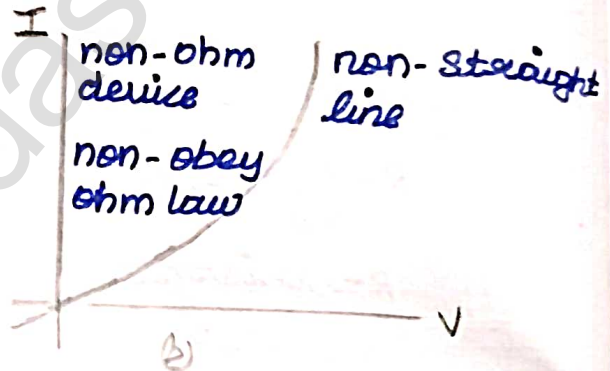 I
non-ohm
device
non-obey
ohm law
non-straight
line
V
(b)